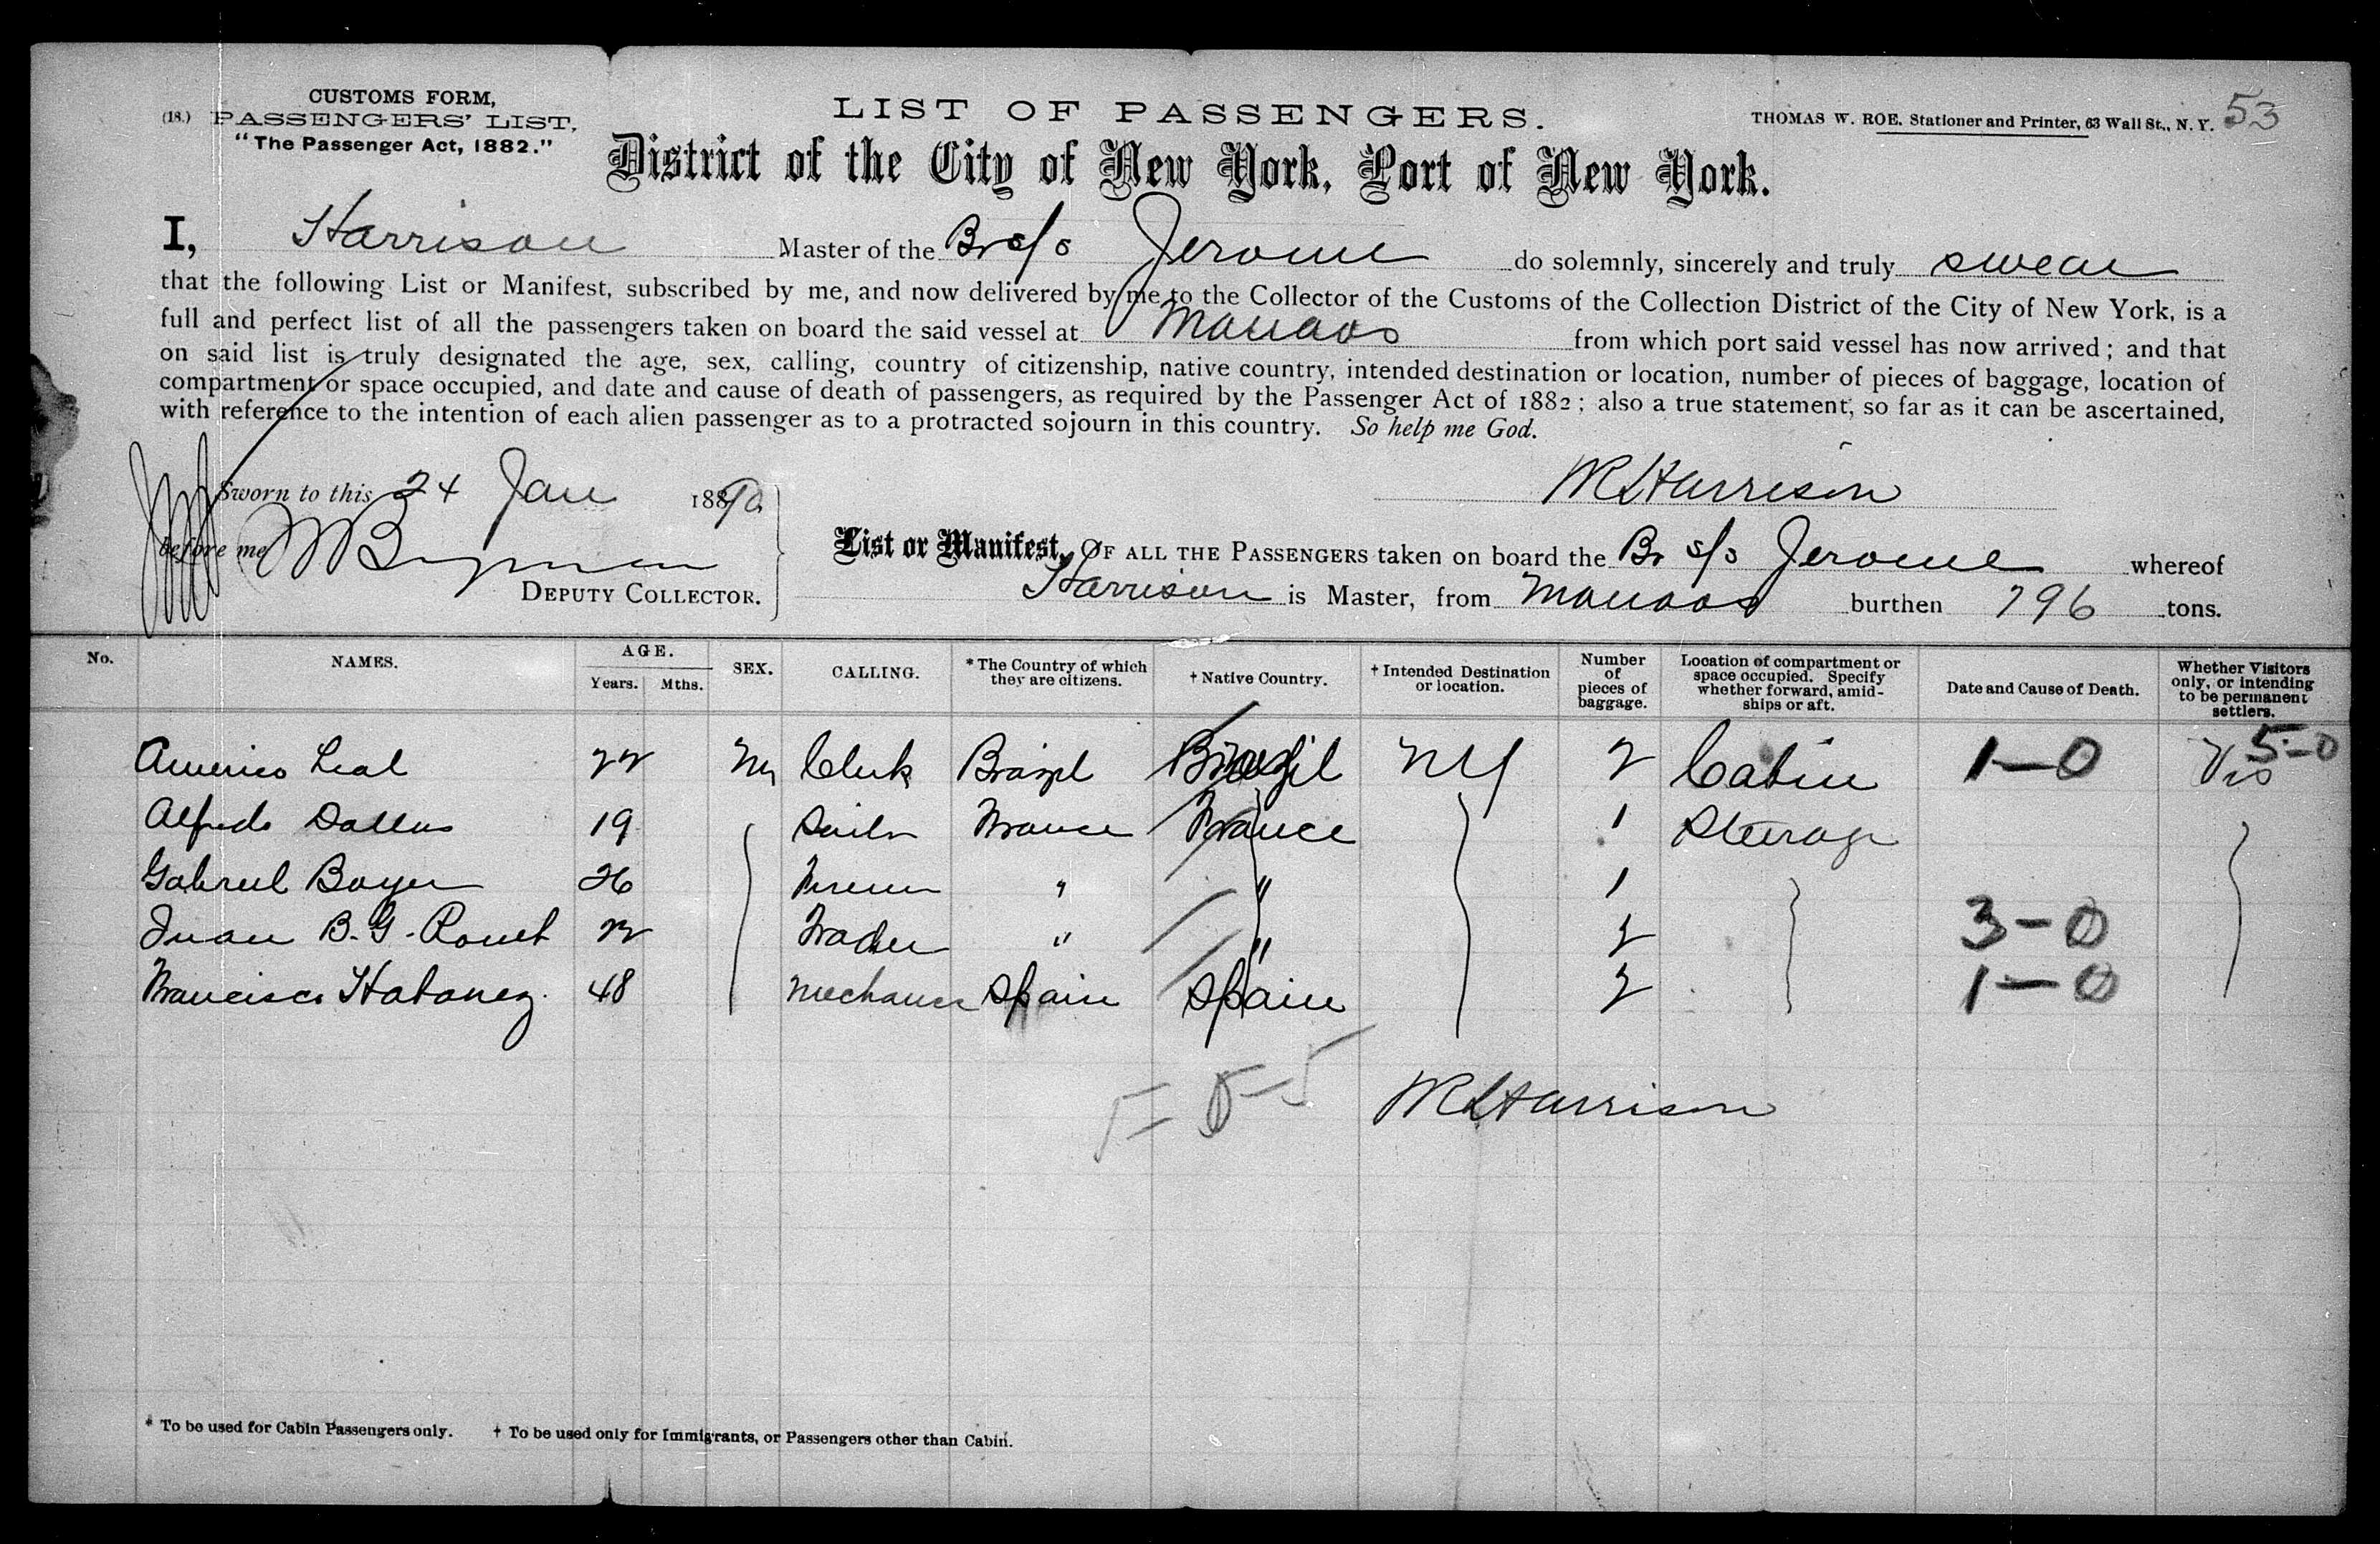 CUSTOMS FORM,
(18.) PASSENGERS' LIST,
"The Passenger Act, 1882."
LIST OF PASSENGERS.
THOMAS W. ROE. Stationer and Printer, 63 Wall St., N. Y. 53
District of the City of New York, Port of New York.
I, Harrison Master of the Br s/s Jerome do solemnly, sincerely and truly swear
that the following List or Manifest, subscribed by me, and now delivered by me to the Collector of the Customs of the Collection District of the City of New York, is a
full and perfect list of all the passengers taken on board the said vessel at Manaos from which port said vessel has now arrived; and that
on said list is truly designated the age, sex, calling, country of citizenship, native country, intended destination or location, number of pieces of baggage, location of
compartment or space occupied, and date and cause of death of passengers, as required by the Passenger Act of 1882; also a true statement, so far as it can be ascertained,
with reference to the intention of each alien passenger as to a protracted sojourn in this country. So help me God.
Sworn to this 24 Jan 1890
WR Harrison
before me
DEPUTY COLLECTOR.
List or Manifest, OF ALL THE PASSENGERS taken on board the Br s/s Jerome whereof
Harrison is Master, from Manaos burthen 796 tons.
No. NAMES. AGE. Years. Mths. SEX. CALLING. * The Country of which they are citizens. † Native Country. † Intended Destination or location. Number of pieces of baggage. Location of compartment or space occupied. Specify whether forward, amidships or aft. Date and Cause of Death. Whether Visitors only, or intending to be permanent settlers.
Americo Leal 22 M Clerk Brazil Brazil NY 2 Cabin 1-0 Vis 5-0
Alfredo Dallas 19 Sailor France France 1 Steerage
Gabriel Boyer 26 " " 1
Juan B. G. Rouet 22 Trader " " 2 3-0
Francisco 48 Mechanic Spain Spain 2 1-0
WR Harrison
* To be used for Cabin Passengers only. † To be used only for Immigrants, or Passengers other than Cabin.